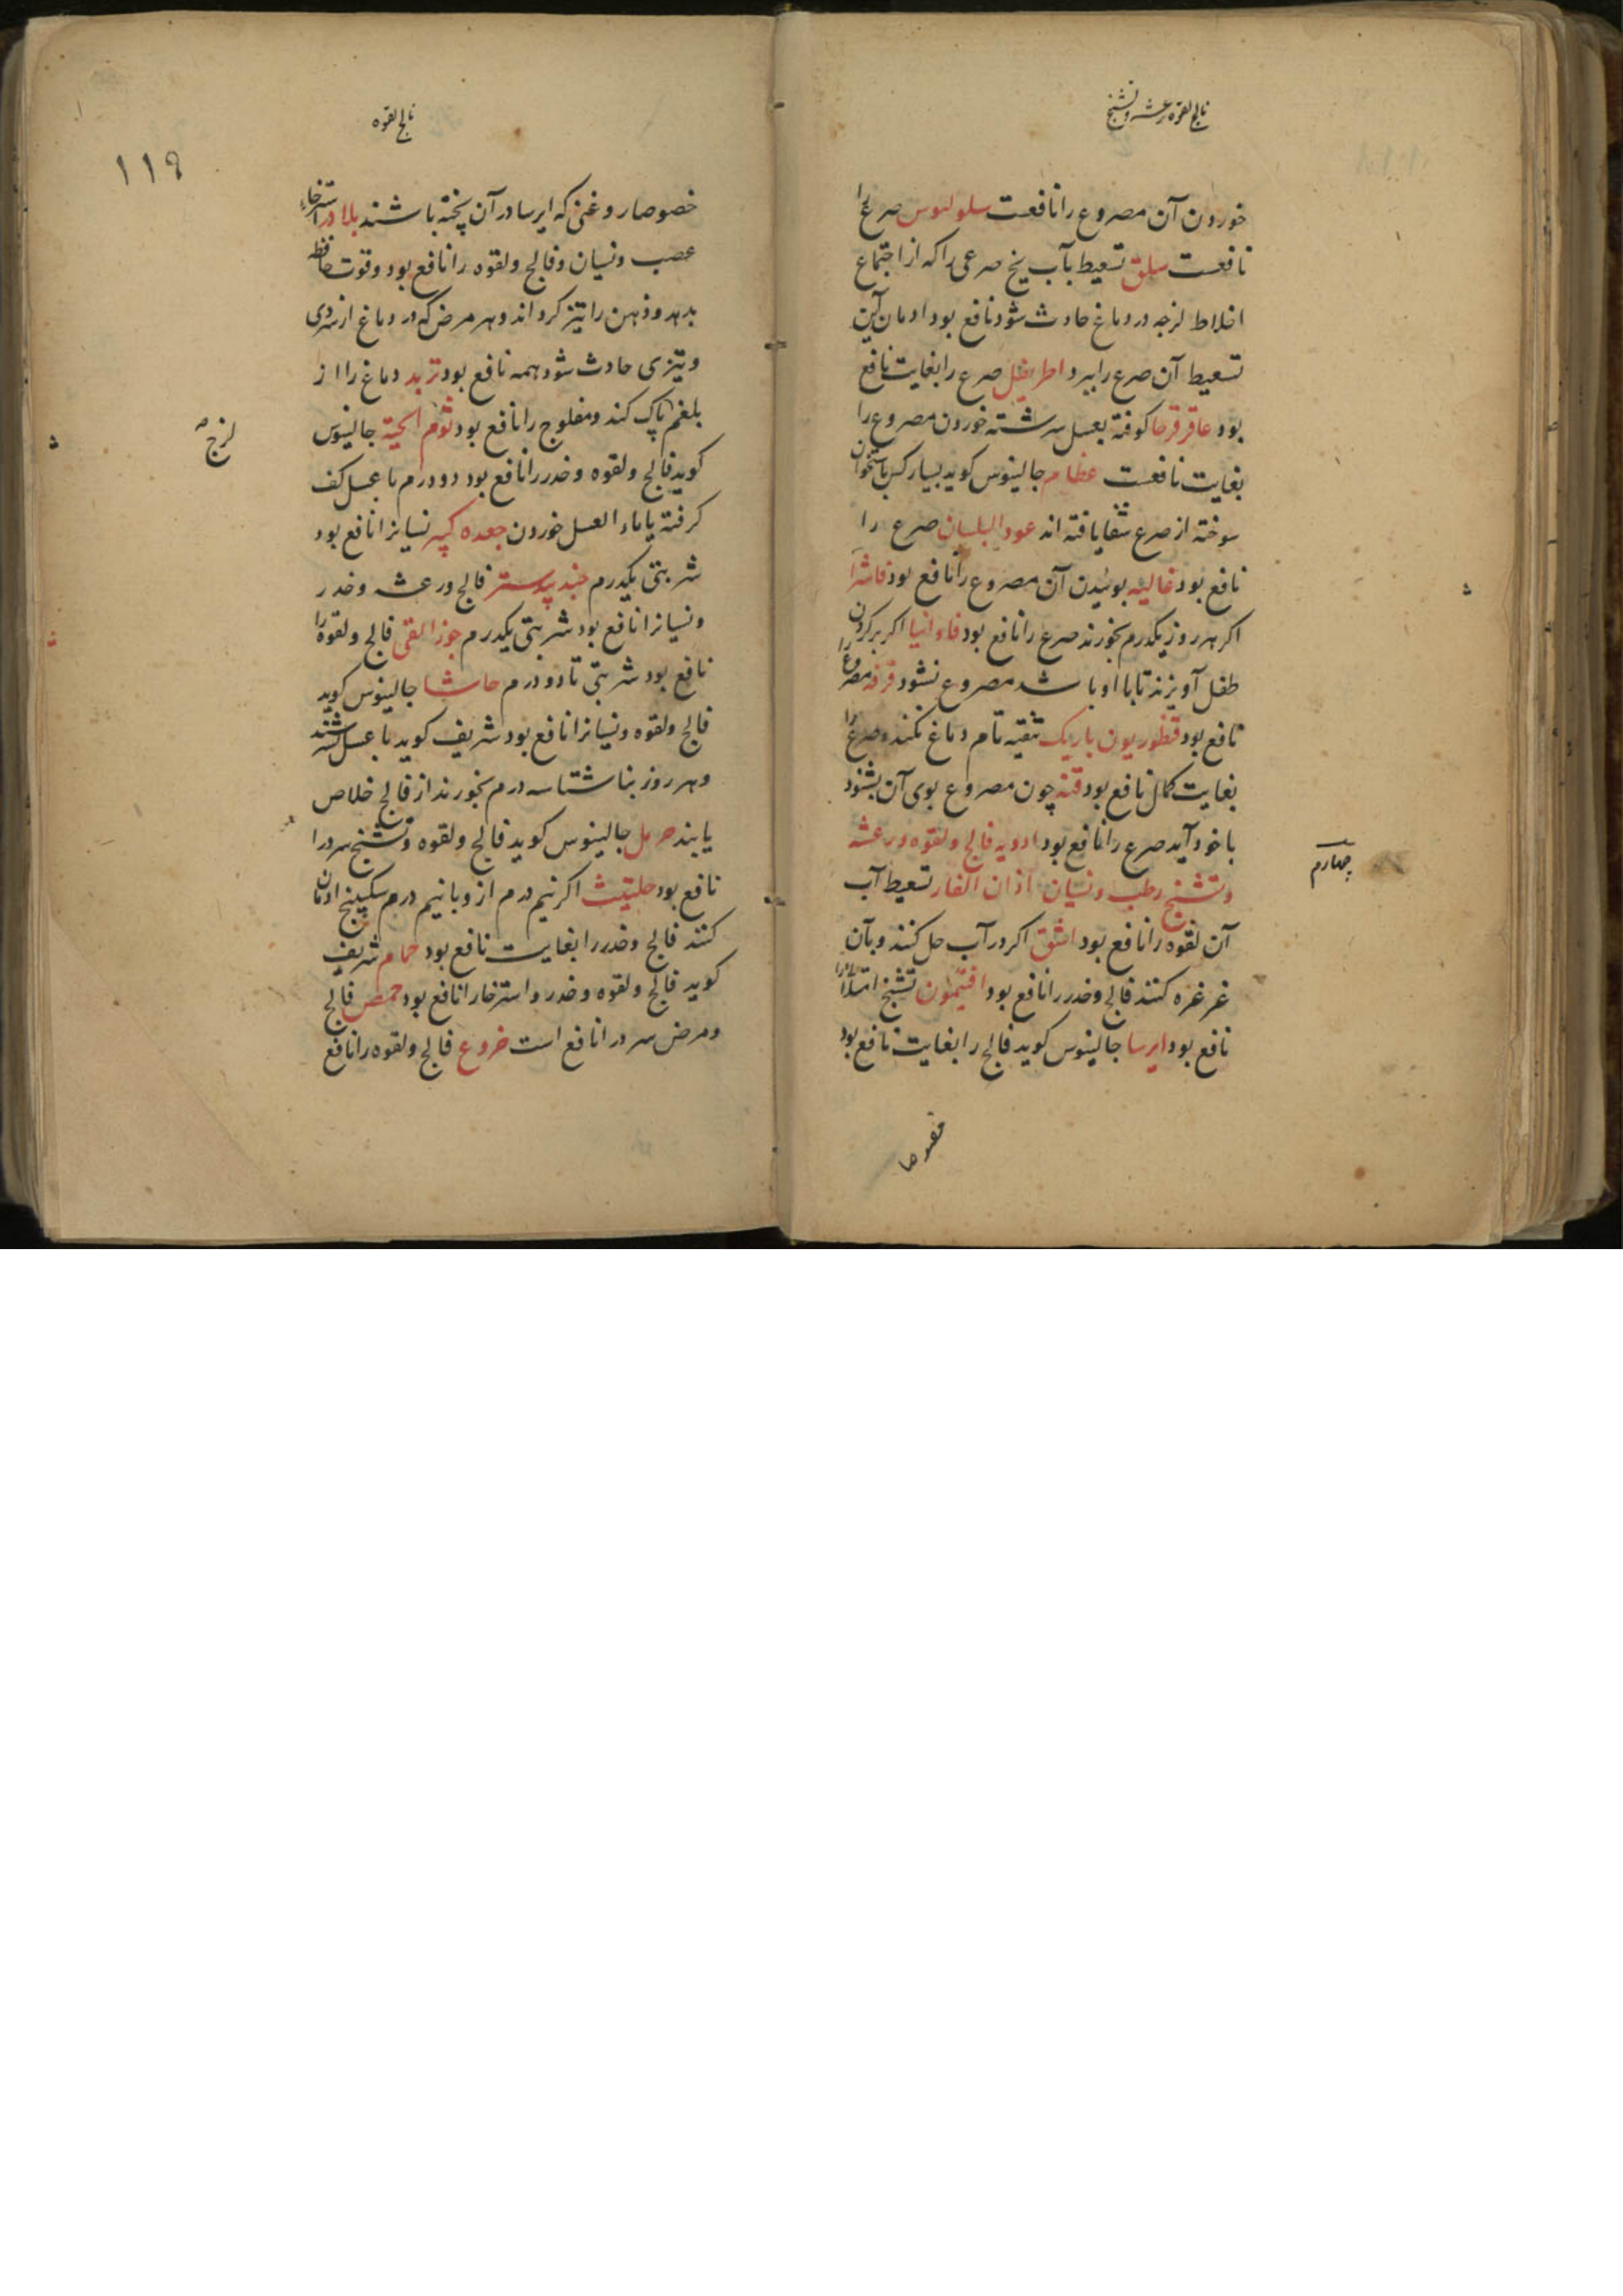 فالج لقوه رعشه و تشنج
خوردن آن مصروع را نافعست سلولیوس صرع را
نافعست سلق تسعیط بآب بیخ صرعی را که از اجتماع
اخلاط لزجه در دماغ حادث شود نافع بود ادمان کین
تسعیط آن صرع را ببرد اطریفل صرع را بغایت نافع
بود عاقرقرحا کوفته بعسل سرشته خوردن مصروع را
بغایت نافعست عظام جالینوس کوید بسیار کس باستخوان
سوخته از صرع شفا یافته اند عود البلسان صرع را
نافع بود غالیه بوئیدن آن مصروع را نافع بود فاشرا
اکر هر روز یکدرم بخورند صرع را نافع بود فاوانیا اکر بر کردن
طفل آویزند تا با او باشد مصروع نشود قرفه مصروع را
نافع بود قنطوریون باریک تنقیه تام دماغ بکند و صرع را
بغایت کمال نافع بود قنه چون مصروع بوی آن بشنود
با خود آید صرع را نافع بود ادویه فالج و لقوه و رعشه
چهارم
و تشنج رطب و نسیان اذان الفار تسعیط آب
آن لقوه را نافع بود اشق اکر در آب حل کنند و بآن
غرغره کنند فالج و خدر را نافع بود افتیمون تشنج امتلا را
نافع بود ایرسا جالینوس کوید فالج را بغایت نافع بود
خصوصا
فالج لقوه
۱۱۹
خصوصا روغنی که ایرسا در آن پخته باشند بلادر استرخاء
عصب و نسیان و فالج و لقوه را نافع بود و قوت حافظه
بدهد و ذهن را تیز کرداند و هر مرض که در دماغ از سردی
و تیزی حادث شود همه نافع بود تربد دماغ را از
بلغم پاک کند و مفلوج را نافع بود ثوم الحیة جالینوس
لزج
کوید فالج و لقوه و خدر را نافع بود دو درم با عسل کف
کرفته یا ماء العسل خوردن جعده کبیر نسیانرا نافع بود
شربتی یکدرم جند بیدستر فالج و رعشه و خدر
و نسیانرا نافع بود شربتی یکدرم جوز القی فالج و لقوه را
نافع بود شربتی تا دو درم حاشا جالینوس کوید
فالج و لقوه و نسیانرا نافع بود شریف کوید با عسل بسرشند
و هر روز بناشتا سه درم بخورند از فالج خلاص
یابند حرمل جالینوس کوید فالج و لقوه و تشنج سرد را
نافع بود حلتیث اکر نیم درم از و با نیم درم سکبینج ادمان
کنند فالج و خدر را بغایت نافع بود حمام شریف
کوید فالج و لقوه و خدر و استرخا را نافع بود حمص فالج
و مرض سرد را نافع است خروع فالج و لقوه را نافع